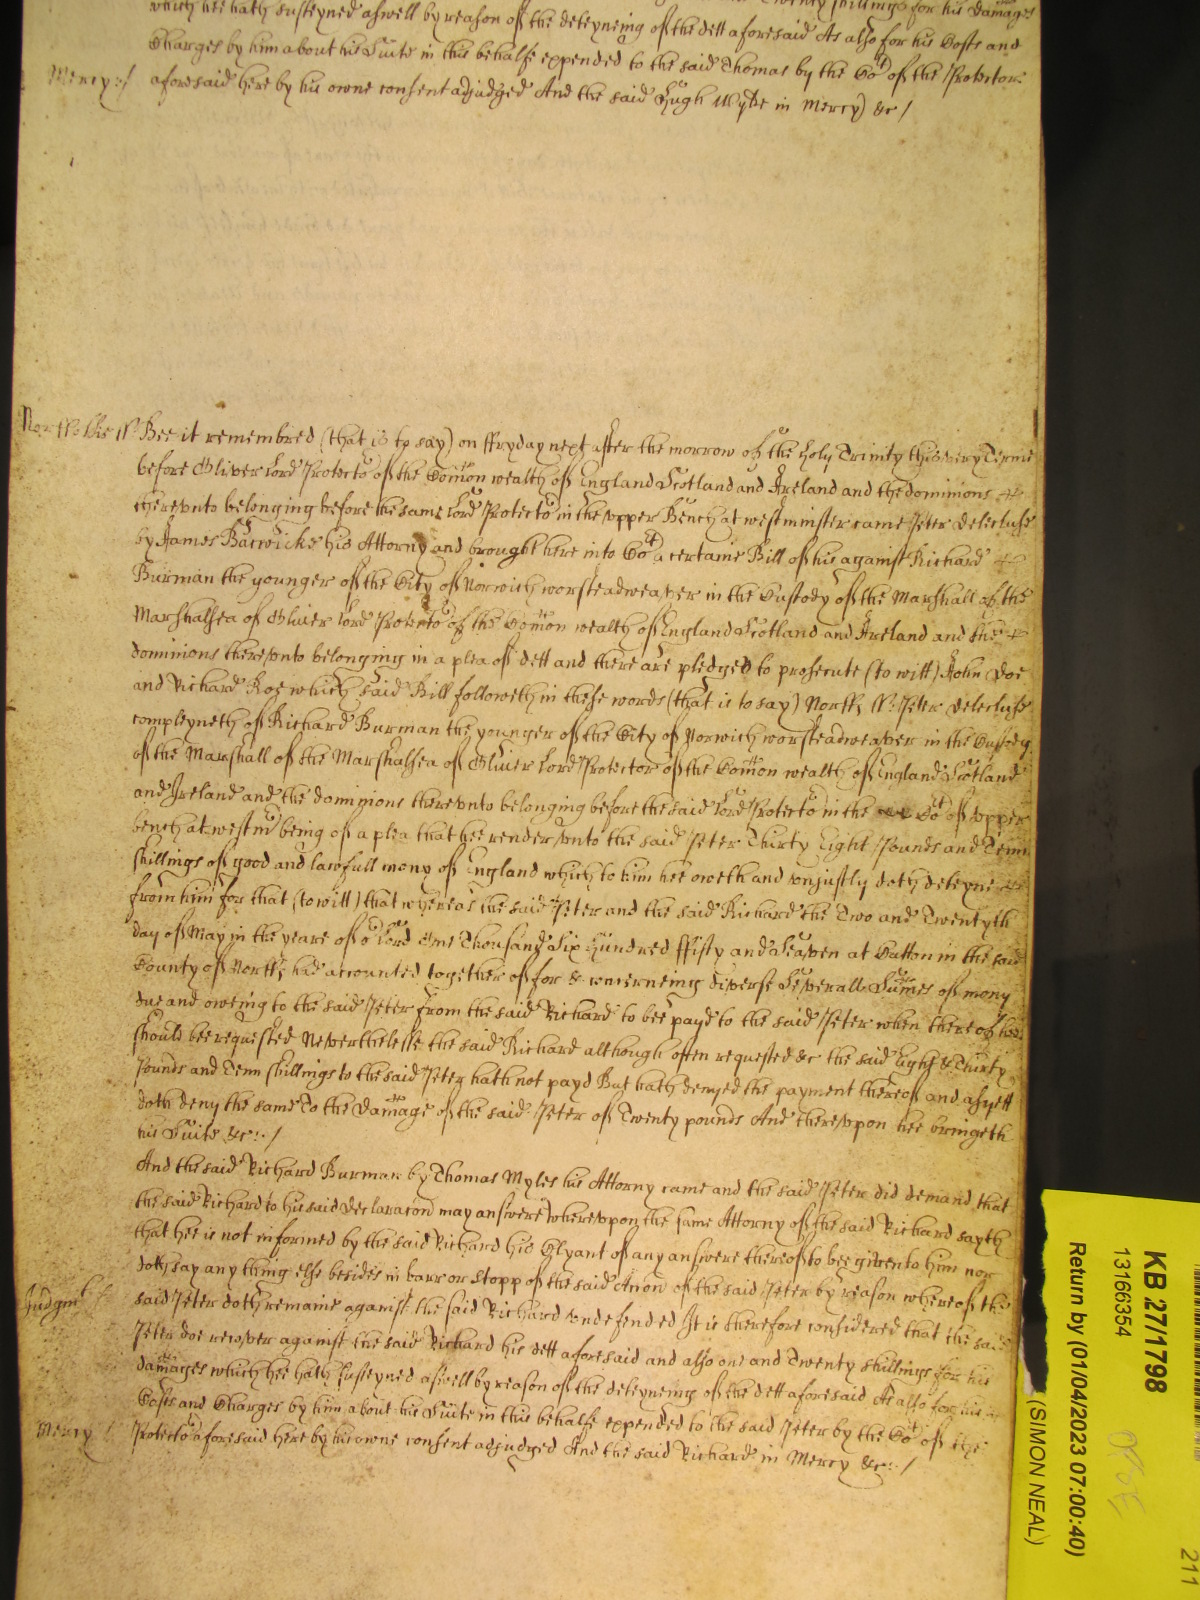 which hee hath susteyned aswell by reason of the deteyneing of the dett aforesaid As also for his Costs and
Charges by him about his Suite in this behalfe expended to the said Thomas by the Cot of the Protector
Mercy :/ aforesaid here by his owne consent adjudged And the said Hugh in Mercy &c /
Norffolke ss Bee it remembred (that is to say) on ffryday next after the morrow of the holy Trinity this very Terme
before Oliver Lord Protector of the Comon wealth of England Scotland and Ireland and the dominions
therevnto belonging before the same Lord Protector in the vpper Bench at westminster came Peter Delecluse
by James Barwicke his Attorny and brought here into Cot a certaine Bill of his against Richard
Burman the younger of the City of Norwich worsteadweaver in the Custody of the Marshall of the
Marshalsea of Oliver Lord Protector of the Comon wealth of England Scotland and Ireland and the
dominions therevnto belonging in a plea of dett and there are pledges to prosecute (to witt) John Doe
and Richard Roe which said Bill followeth in these words (that is to say) Norff ss Peter Delecluse
compleyneth of Richard Burman the younger of the City of Norwich worsteadweaver in the Custody
of the Marshall of the Marshalsea of Oliver Lord Protector of the Comon wealth of England Scotland
and Ireland and the dominions therevnto belonging before the said Lord Protector in the Cot of vpper
bench at westmr being of a plea that hee render vnto the said Peter Thirty Eight Pounds and Tenn
shillings of good and lawfull mony of England which to him hee oweth and vnjustly doth deteyne
from him for that (to witt) that whereas the said Peter and the said Richard the Two and Twentyth
day of May in the yeare of or Lord One Thousand Six Hundred ffifty and Seaven at Catton in the said
County of Norff had accounted together of for & concerneing diverse severall Sumes of mony
due and oweing to the said Peter from the said Richard to bee payd to the said Peter when thereof hee
should bee requested Neverthelesse the said Richard although often requested &c the said Eight & Thirty
Pounds and Tenn shillings to the said Peter hath not payd But hath denyed the payment thereof and as yett
doth deny the same To the Damage of the said Peter of Twenty pounds And therevpon hee bringeth
his Suite &c :/
And the said Richard Burman by Thomas Myles his Attorny came and the said Peter did demand that
the said Richard to his said Declaracon may answere wherevpon the same Attorny of the said Richard sayth
that hee is not informed by the said Richard his Clyant of any answere thereof to bee given to him nor
doth say any thing else besides in barr or Stopp of the said Accon of the said Peter by reason whereof the
Judgmt said Peter doth remaine against the said Richard vndefended It is therefore considered that the said
Peter doe recover against the said Richard his dett aforesaid and also one and Twenty shillings for his
damages which hee hath susteyned aswell by reason of the deteyneing of the dett aforesaid As also for his
Costs and Charges by him about his Suite in this behalfe expended to the said Peter by the Cot of the
Mercy Protector aforesaid here by his owne consent adjudged And the said Richard in Mercy &c :/
KB 27/1798
13166354
Return by (01/04/2023 07:00:40)
(SIMON NEAL)
211